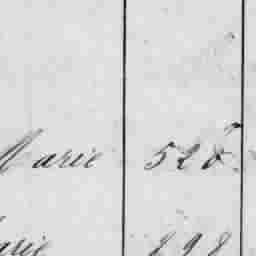 Marie 528
arie 898